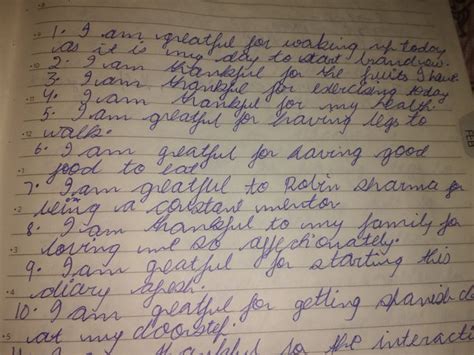 1. I am greatful for waking up today
as it is my day to start brandnew.
2. I am thankful for the fruits I have
3. I am thankful for exercising today
4. I am thankful for my health.
5. I am greatful for having legs to
walk.
6. I am greatful for having good
food to eat
7. I am greatful to Robin Sharma for
being a constant mentor
8. I am thankful to my family for
loving me so affectionately.
9. I am greatful for starting this
diary afresh.
10. I am greatful for getting spanish
at my doorstep.
thankful to the